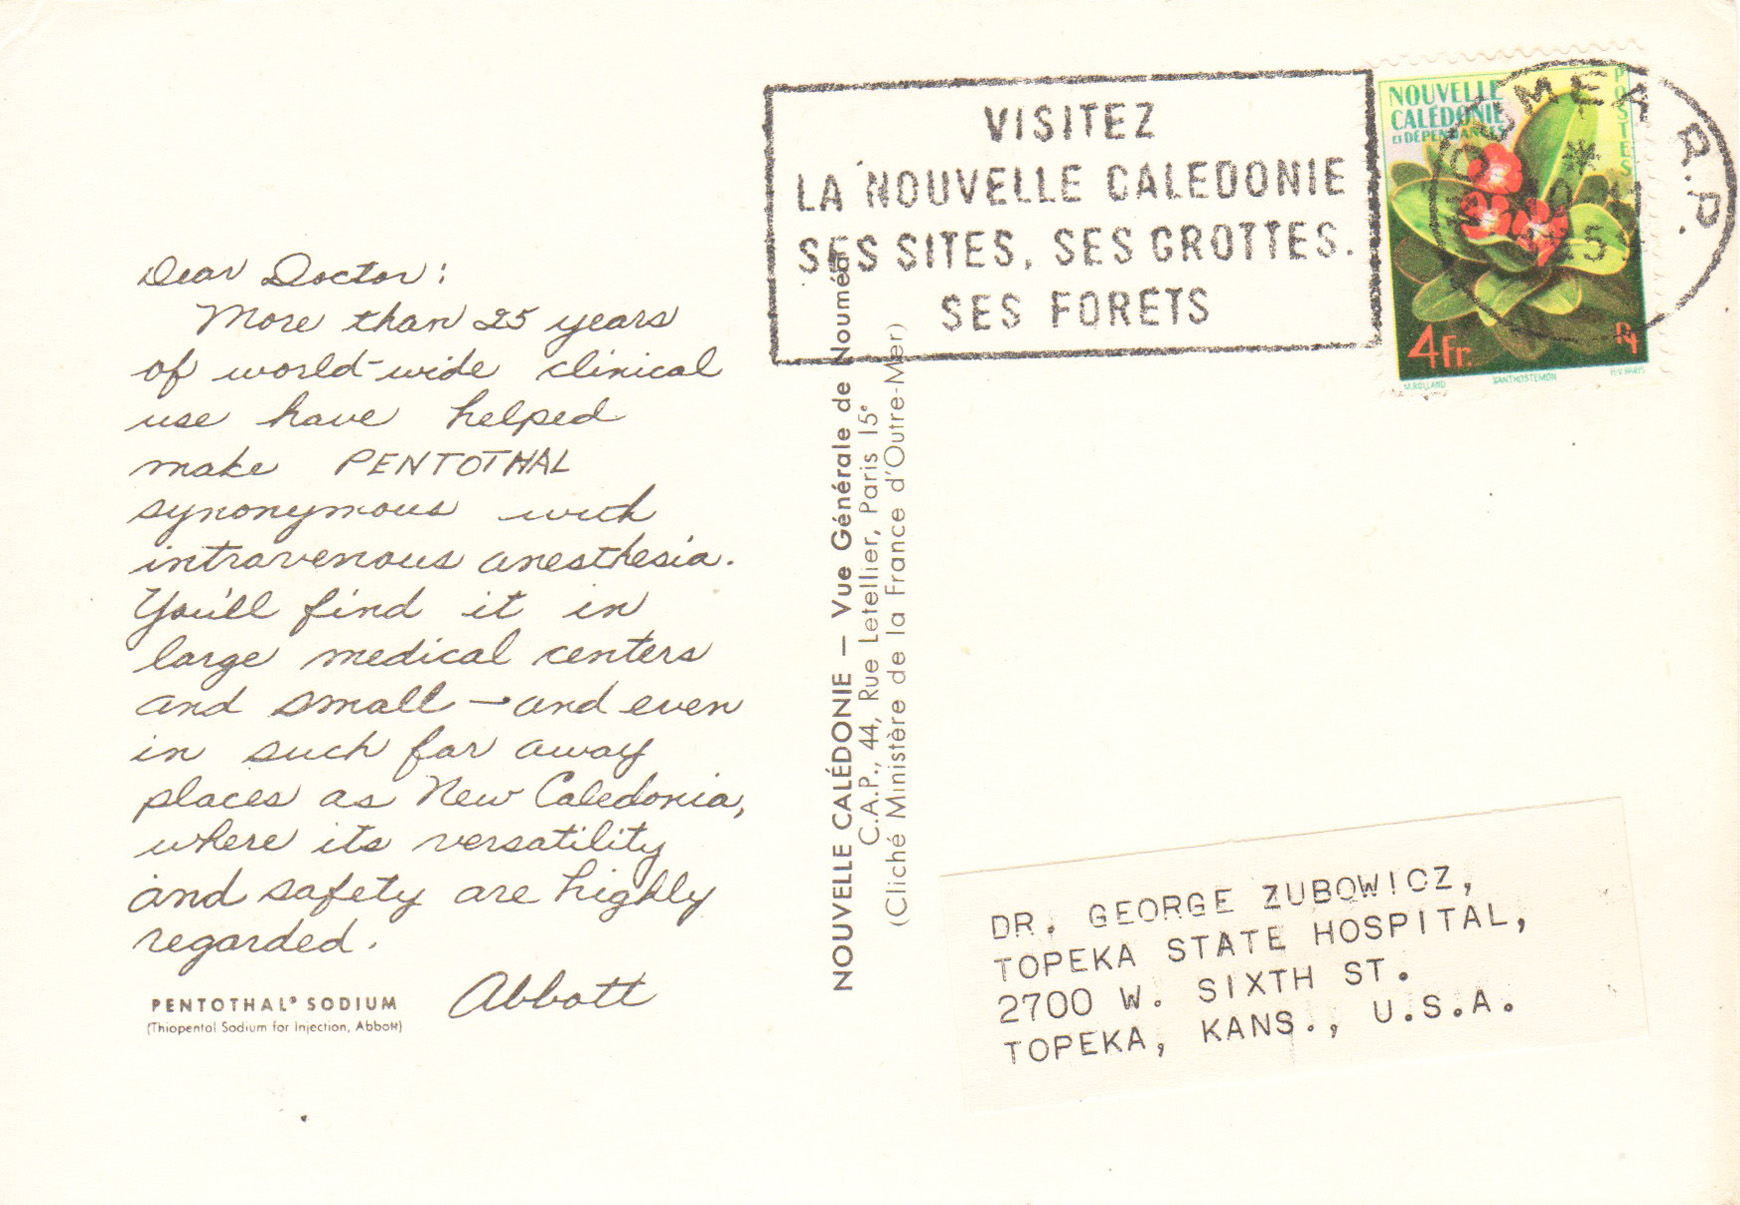 Dear Doctor:
More than 25 years
of world-wide clinical
use have helped
make PENTOTHAL
synonymous with
intravenous anesthesia.
You'll find it in
large medical centers
and small — and even
in such far away
places as New Caledonia,
where its versatility
and safety are highly
regarded.
Abbott
PENTOTHAL® SODIUM
(Thiopental Sodium for Injection, Abbott)
NOUVELLE CALÉDONIE — Vue Générale de Nouméa
C.A.P., 44, Rue Letellier, Paris 15e
(Cliché Ministère de la France d'Outre-Mer)
VISITEZ
LA NOUVELLE CALEDONIE
SES SITES, SES GROTTES.
SES FORETS
NOUVELLE
CALÉDONIE
ET DÉPENDANCES
POSTES
4Fr.
M.ROLLAND XANTHOSTEMON H.V. PARIS
NOUMEA R.P.
DR. GEORGE ZUBOWICZ,
TOPEKA STATE HOSPITAL,
2700 W. SIXTH ST.
TOPEKA, KANS., U.S.A.